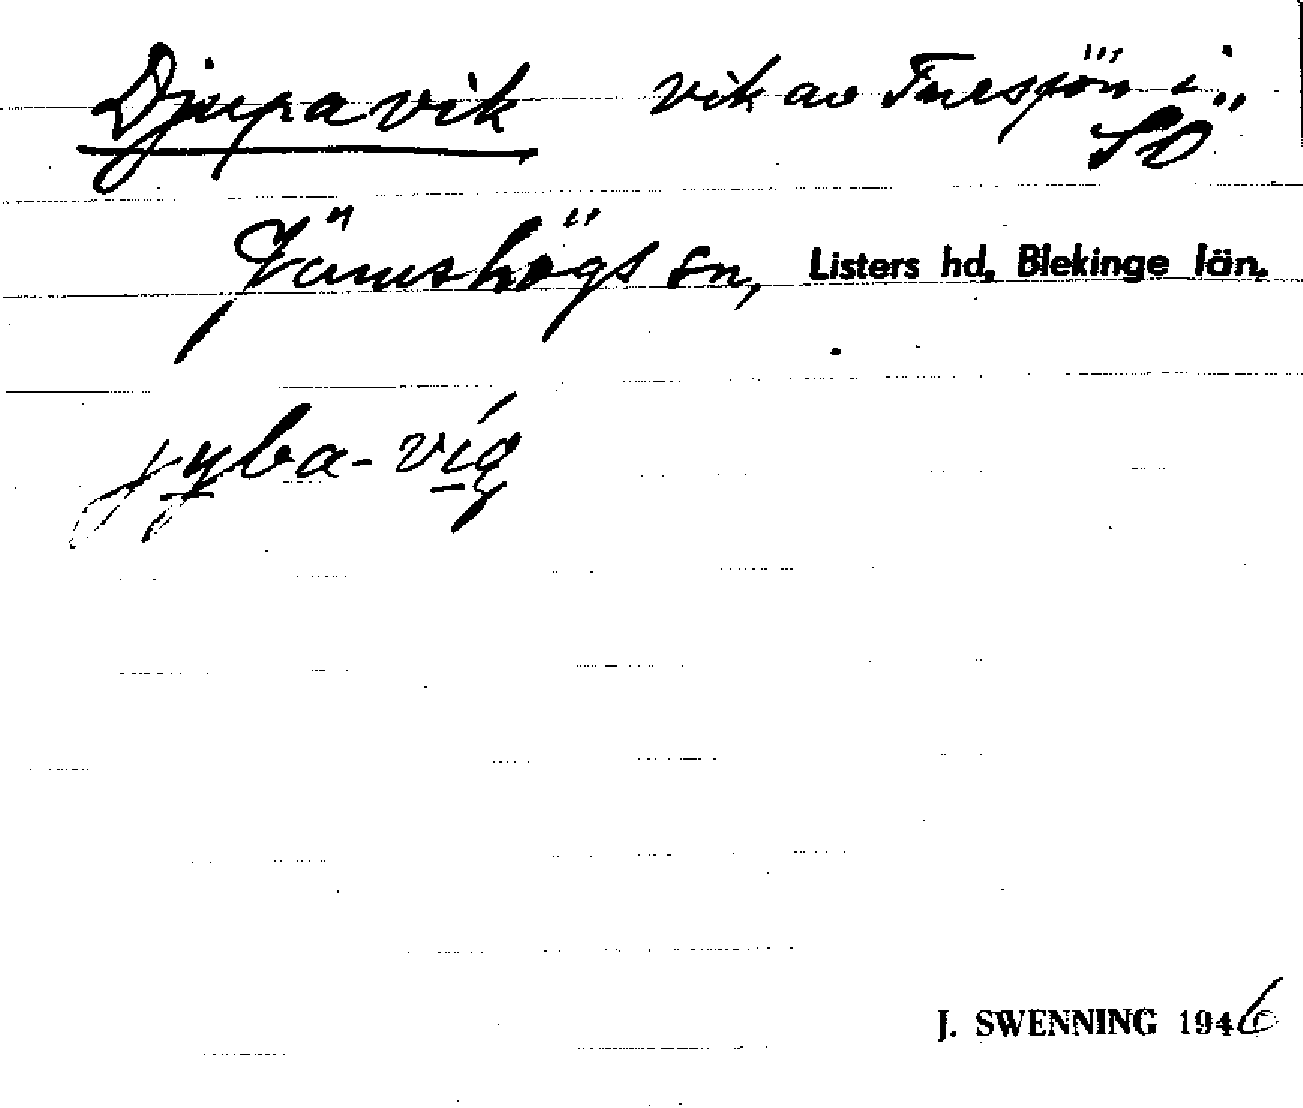 Djupavik vik av Tulesjön i
SÖ
Jämshögs sn, Listers hd, Blekinge län.
jyba-vig
J. SWENNING 1946